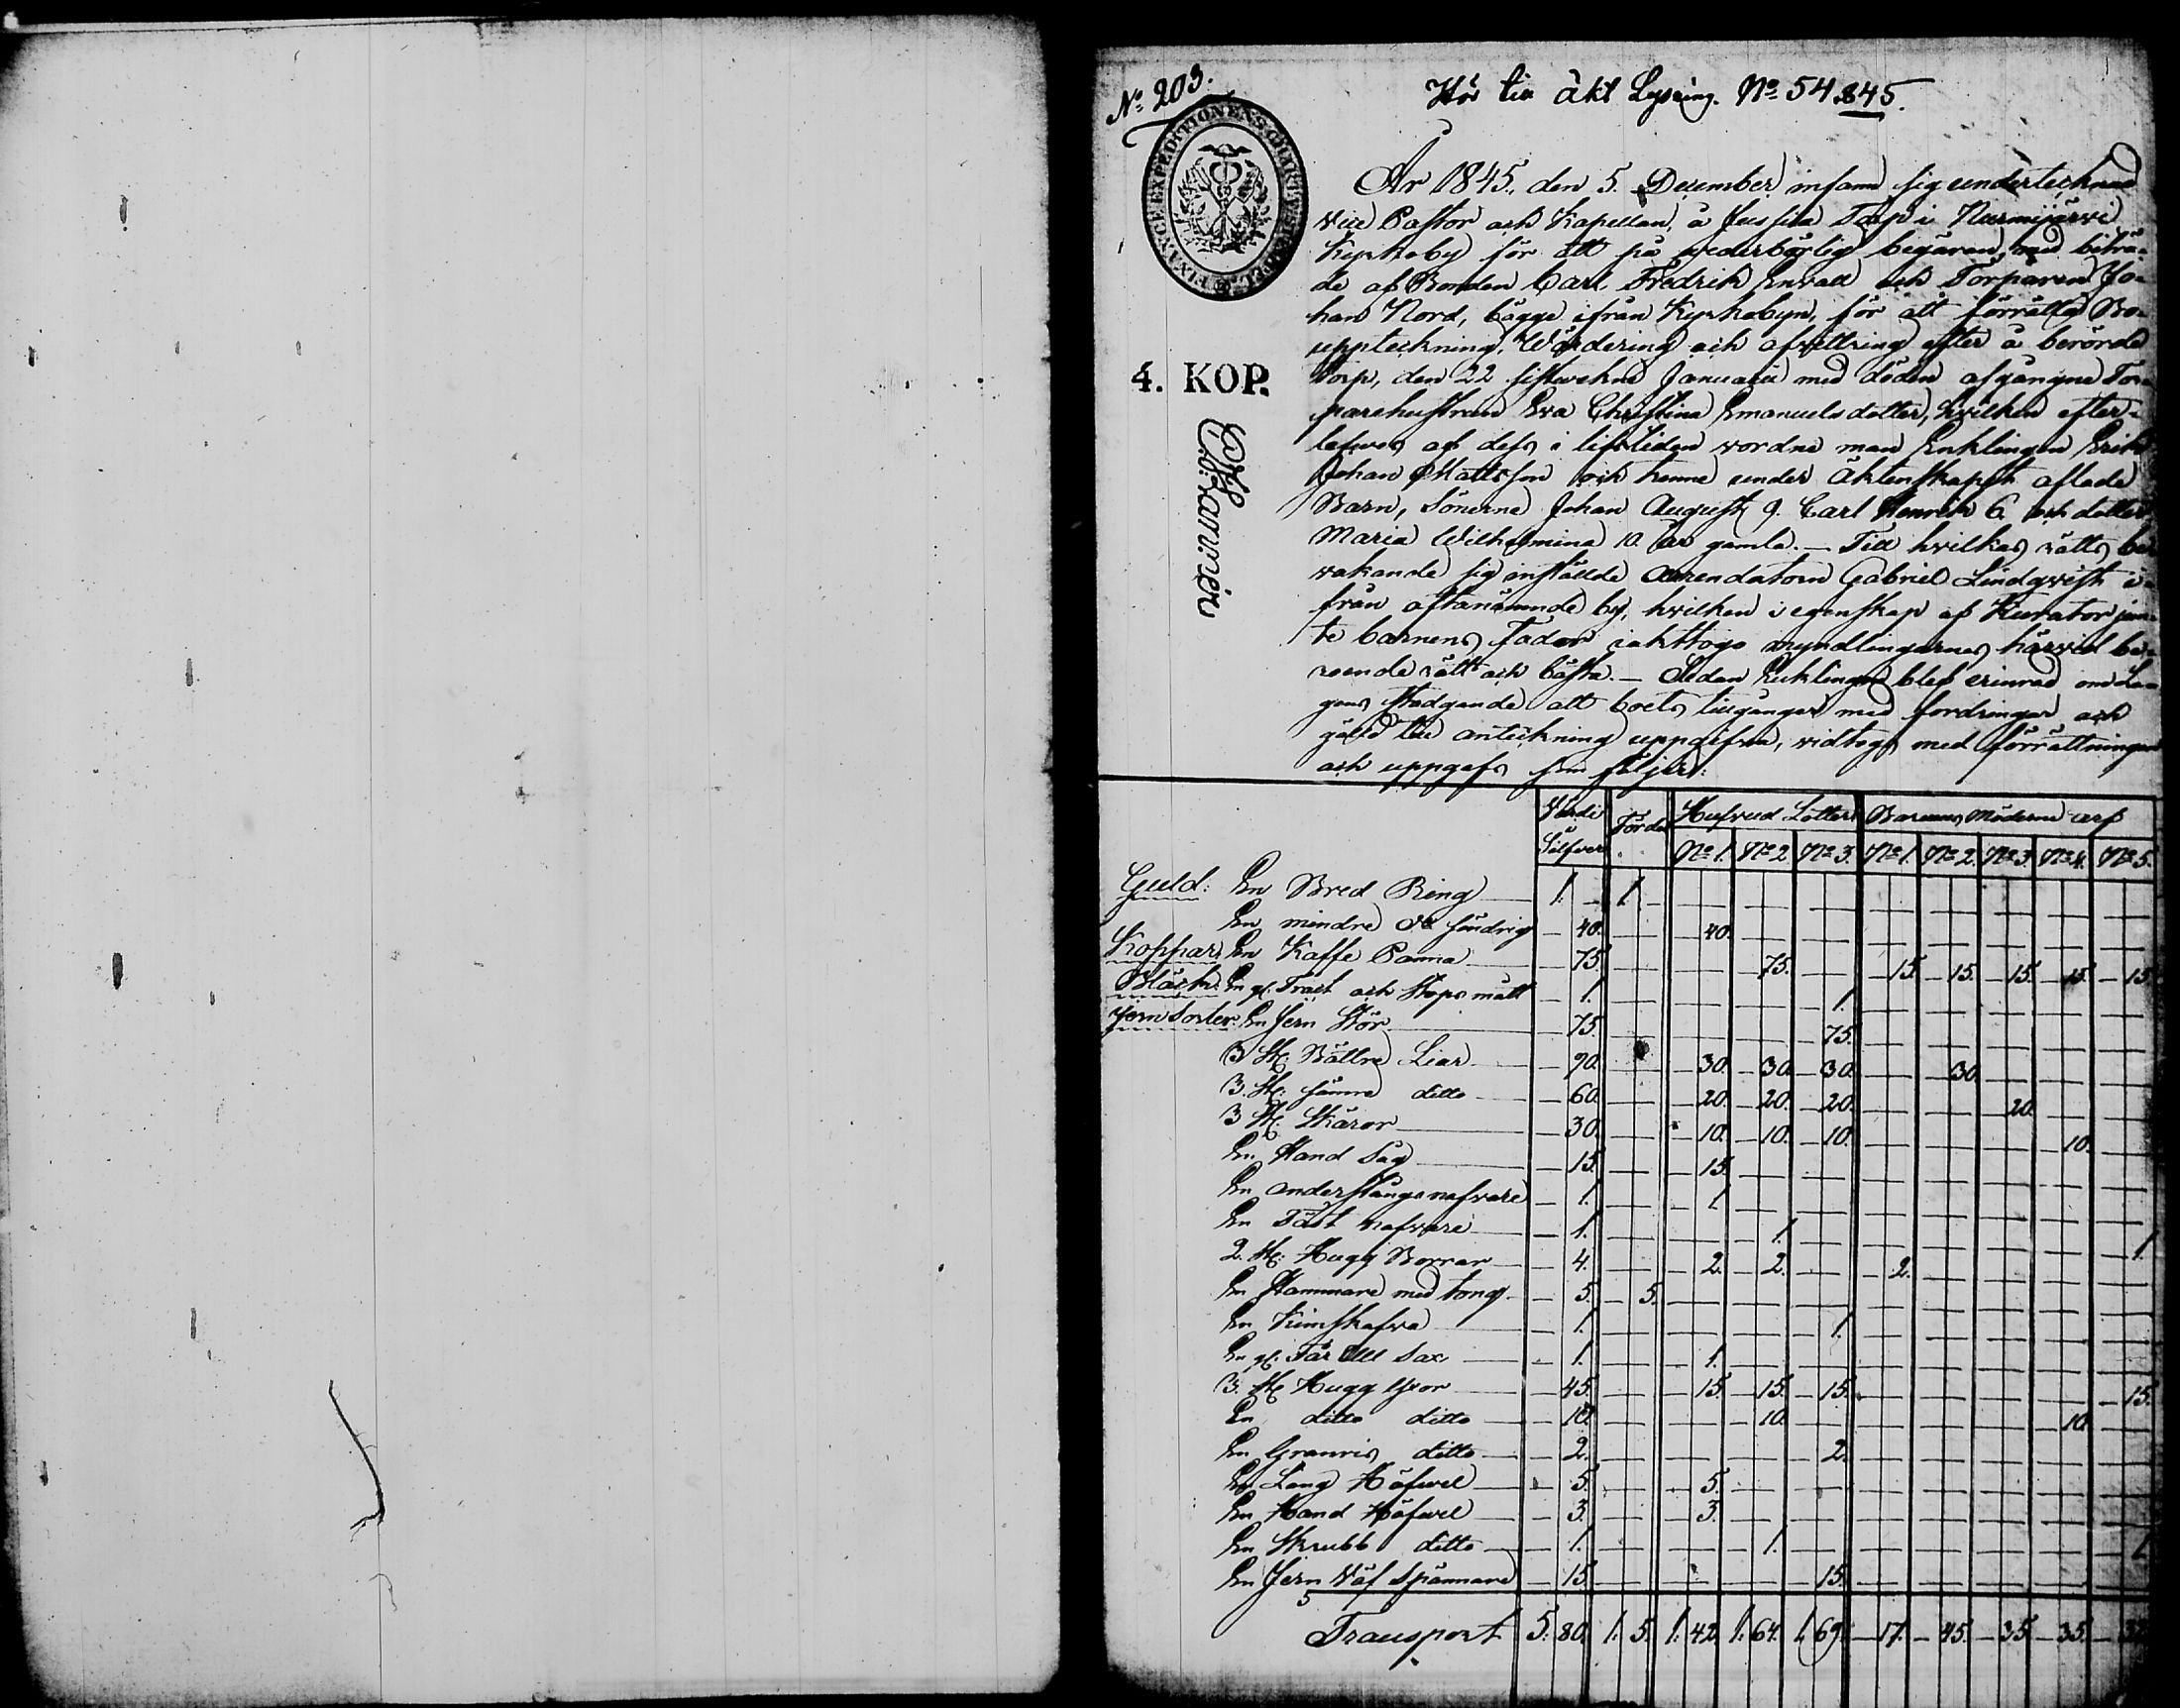 No 203.
Hör till äkt Lysning. No 54. 845.
FINANCE EXPEDITIONENS CHARTÆ STÆMPEL
År 1845. den 5. December infann sig undertecknad
vice Pastor och Kapellan, å Jussila Torp i Nurmijärvi
Kyrkoby för att på vederbörlig begäran, med biträ-
de af Bonden Carl Fredrik Envall och Torparen Jo-
han Nord, bägge ifrån Kyrkobyn, för att förrätta Bo-
uppteckning, Wärdering och afvittring efter å berörde
4. KOP.
Torp, den 22 sistvekne Januarii med döden afgångne Tor-
parehustrun Eva Christina Emanuelsdotter, hvilken efter-
lefves af dess i lifstiden vordne man Enklingen Erik
Johan Mattsson och henne under äktenskapet aflade
Barn, Sönerne Johan August 9. Carl Henrik 6. och dotter
Maria Wilhelmina 10. år gamla. — Till hvilkas rätts be-
vakande sig inställde Arrendatorn Gabriel Lindqvist i-
från oftanämnde by, hvilken i egenskap af Kurator jem-
te barnens Fader iakttogo myndlingarnes härvid be-
roende rätt och bästa. — Sedan Enklingen blef erinrad om La-
gens stadgande att boets tillgångar med fordringar och
gäld till anteckning uppgifva, vidtogs med förrättningen
och uppgafs som följer:
Värde Silfver Fördel Hufvud Lotter Barnens Möderne arf
No 1. No 2. No 3. No 1. No 2. No 3. No 4. No 5.
Guld: En Bred Ring 1. — 1. —
En mindre do söndrig — 40. — 40.
Koppar: En Kaffe Panna — 75. — 75. — 15. — 15. — 15. — 15. — 15.
Bläck: En gl. Tratt och Stops mått — 1. — 1.
Jern Sorter: En Jern Stör — 75. — 75.
3 St. Bättre Liar — 90. — 30. — 30. — 30. — 30.
3. St. sämre ditto — 60. — 20. — 20. — 20. — 20.
3 St. Skäror — 30. — 10. — 10. — 10. — 10.
En Hand Såg — 15. — 15.
En anderstångs nafvare — 1. — 1
En Tåt nafvare — 1. — 1. — 1.
2. St. Hugg Borrar — 4. — 2. — 2. — 2.
En Hammare med tong — 5. — 5.
En Kimskafva — 1. — 1.
En gl. Får Ull Sax — 1. — 1.
3. St. Hugg Yxor — 45. — 15. — 15. — 15. — 15.
En ditto ditto — 10. — 10. — 10.
En Granris ditto — 2. — 2.
En Lång Höfvel — 5. — 5.
En Hand Höfvel — 3. — 3.
En Skrubb ditto — 1. — 1. — 1.
En Jern Väf Spännare — 15. — 15.
Transport 5. 80. 1. 5. 1. 42. 1. 64. 1. 69. — 17. — 45. — 35. — 35. — 32.